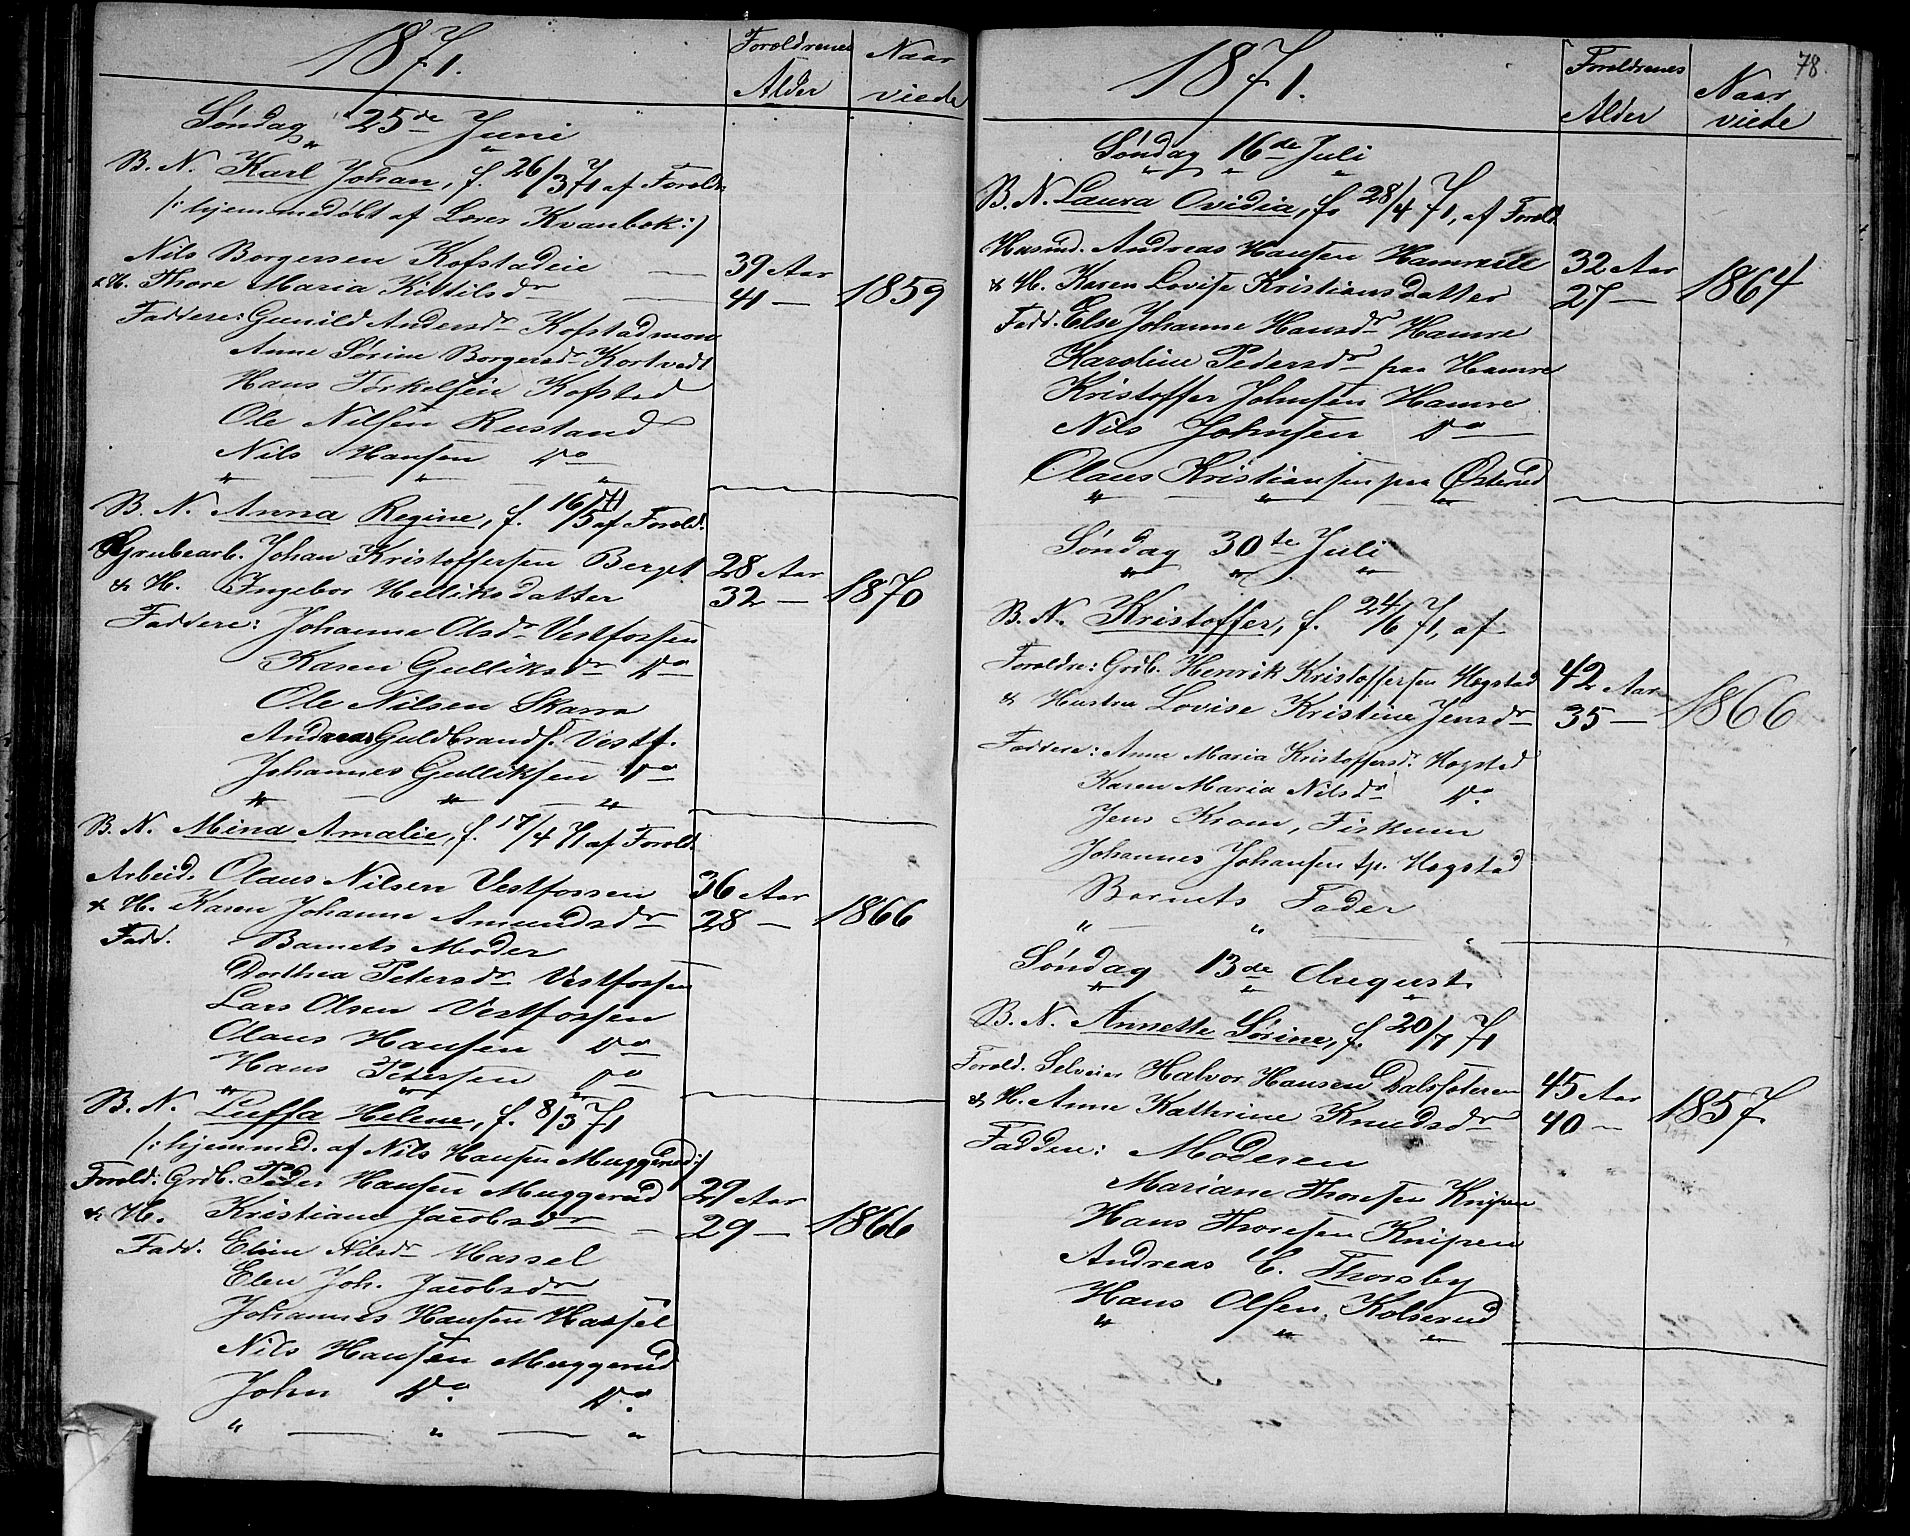 1871.
Forældrenes Alder
Naar viede
Søndag 25de Juni
B. N. Karl Johan, f. 26/3 71 af Foreldr
/: hjemmedøbt af Lærer Kvanbek :/
Nils Borgersen Kofstadeie 39 Aar
& H. Thore Maria Kittilsdr 41 — 1859
Faddere: Gunild Andersdr Kofstadmoen
Anne Sørine Borgersdr Kortvedt
Hans Torkelsen Kofstad
Ole Nilsen Rustand
Nils Hansen Do
" — " — "
B. N. Anna Regine, f. 16/5 71 af Foreld.
Grubearb. Johan Kristoffersen Berget 28 Aar
& H. Ingebor Helliksdatter 32 — 1870
Faddere: Johanne Olsdr Vestfossen
Karen Gulliksdr Do
Ole Nilsen Skarra
Andreas Guldbrands. Vestf.
Johannes Gulliksen Do
" — " — "
B. N. Mina Amalie, f. 17/4 71 af Foreld.
Arbeid. Olaus Nilsen Vestfossen 36 Aar
& H. Karen Johanne Amundsdr 28 — 1866
Fadd. Barnets Moder
Dorthea Petersdr Vestfossen
Lars Olsen Vestfossen
Olaus Hansen Do
Hans Petersen Do
" " "
B. N. Luffa Helene, f. 8/3 71
/: hjemmed. af Nils Hansen Muggerud :/
Foreld: Grdb. Peder Hansen Muggerud 29 Aar
& H. Kristiane Jacobsdr 29 — 1866
Fadd. Eline Nilsdr Hassel
Elen Joh. Jacobsdr
Johannes Hansen Hassel
Nils Hansen Muggerud
John Do. Do.
" — " — "
78.
1871.
Foreldrenes Alder
Naar viede
Søndag 16de Juli
B. N. Laura Ovidia, f. 28/4 71, af Foreld.
Husmd. Andreas Hansen 32 Aar
& H. Karen Lovise Kristiansdatter 27 — 1864
Fadd. Else Johanne Hansdr Hamre
Karoline Pedersdr paa Hamre
Kristoffer Johnsen Hamre
Nils Johnsen Do
Olaus Kristiansen paa Østerud
" " "
Søndag 30te Juli
B. N. Kristoffer, f. 24/6 71, af
Foreldre: Grdb. Henrik Kristoffersen Hogstad 42 Aar
& Hustru Lovise Kristine Jensdr 35 — 1866
Faddere: Anne Maria Kristoffersdr. Hogstad
Karen Maria Nilsdr Do.
Jens Krom, Fiskum
Johannes Johansen tp. Hogstad
Barnets Fader
" — " — "
Søndag 13de August.
B. N. Annette Sørine, f. 20/7 71
Foreld. Selveier Halvor Hansen Dalsseteren 45 Aar
& H. Anne Kathrine Knudsdr 40 — 1857.
Faddere: Moderen
Mariane Thoresen Knipen
Hans Thoresen Knipen
Andreas C. Thorsby
Hans Olsen Kolserud
" " "